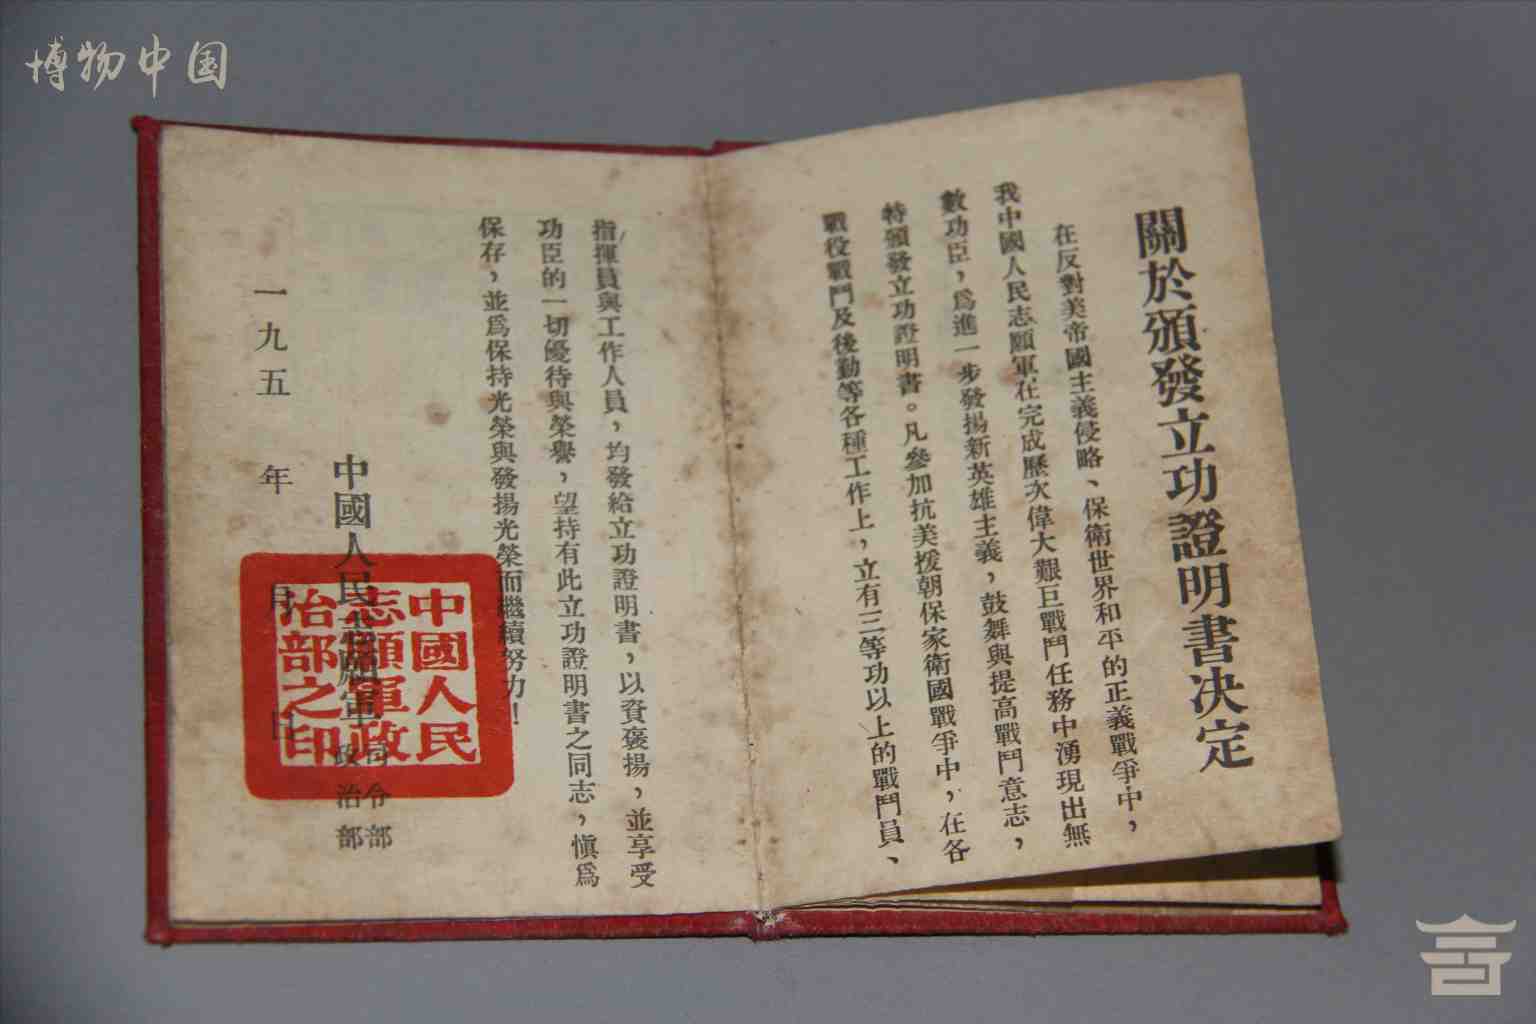 博物中国
關於頒發立功證明書決定
在反對美帝國主義侵略、保衛世界和平的正義戰爭中，
我中國人民志願軍在完成歷次偉大艱巨戰鬥任務中湧現出無
數功臣，爲進一步發揚新英雄主義，鼓舞與提高戰鬥意志，
特頒發立功證明書。凡參加抗美援朝保家衛國戰爭中，在各
戰役戰鬥及後勤等各種工作上，立有三等功以上的戰鬥員、
指揮員與工作人員，均發給立功證明書，以資褒揚，並享受
功臣的一切優待與榮譽，望持有此立功證明書之同志，愼爲
保存，並爲保持光榮與發揚光榮而繼續努力！
中國人民志願軍
司令部
政治部
一九五 年 月 日
中國人民
志願軍政
治部之印